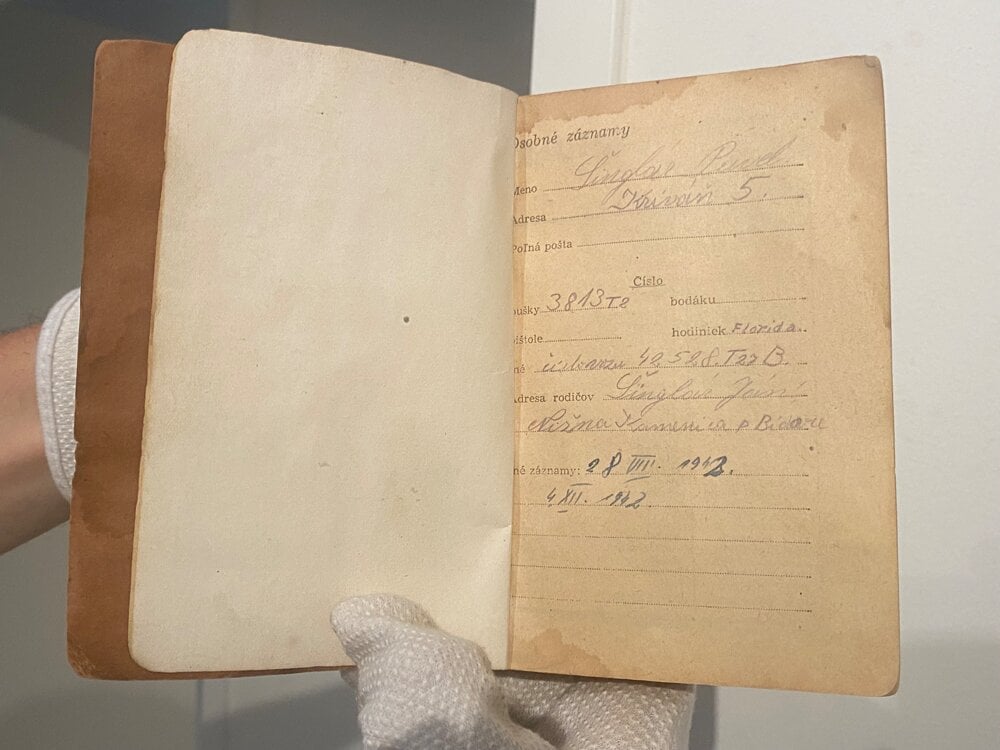 Osobné záznamy
Meno Šinglár Pavel
Adresa Kriváň 5.
Poľná pošta
Číslo
pušky 3813 T2 bodáku
pištole hodiniek Florida.
né 40528
Adresa rodičov Jani
Nižna Kamenica p Bidovce
né záznamy: 28 VIII. 1942.
4 XII. 1942.